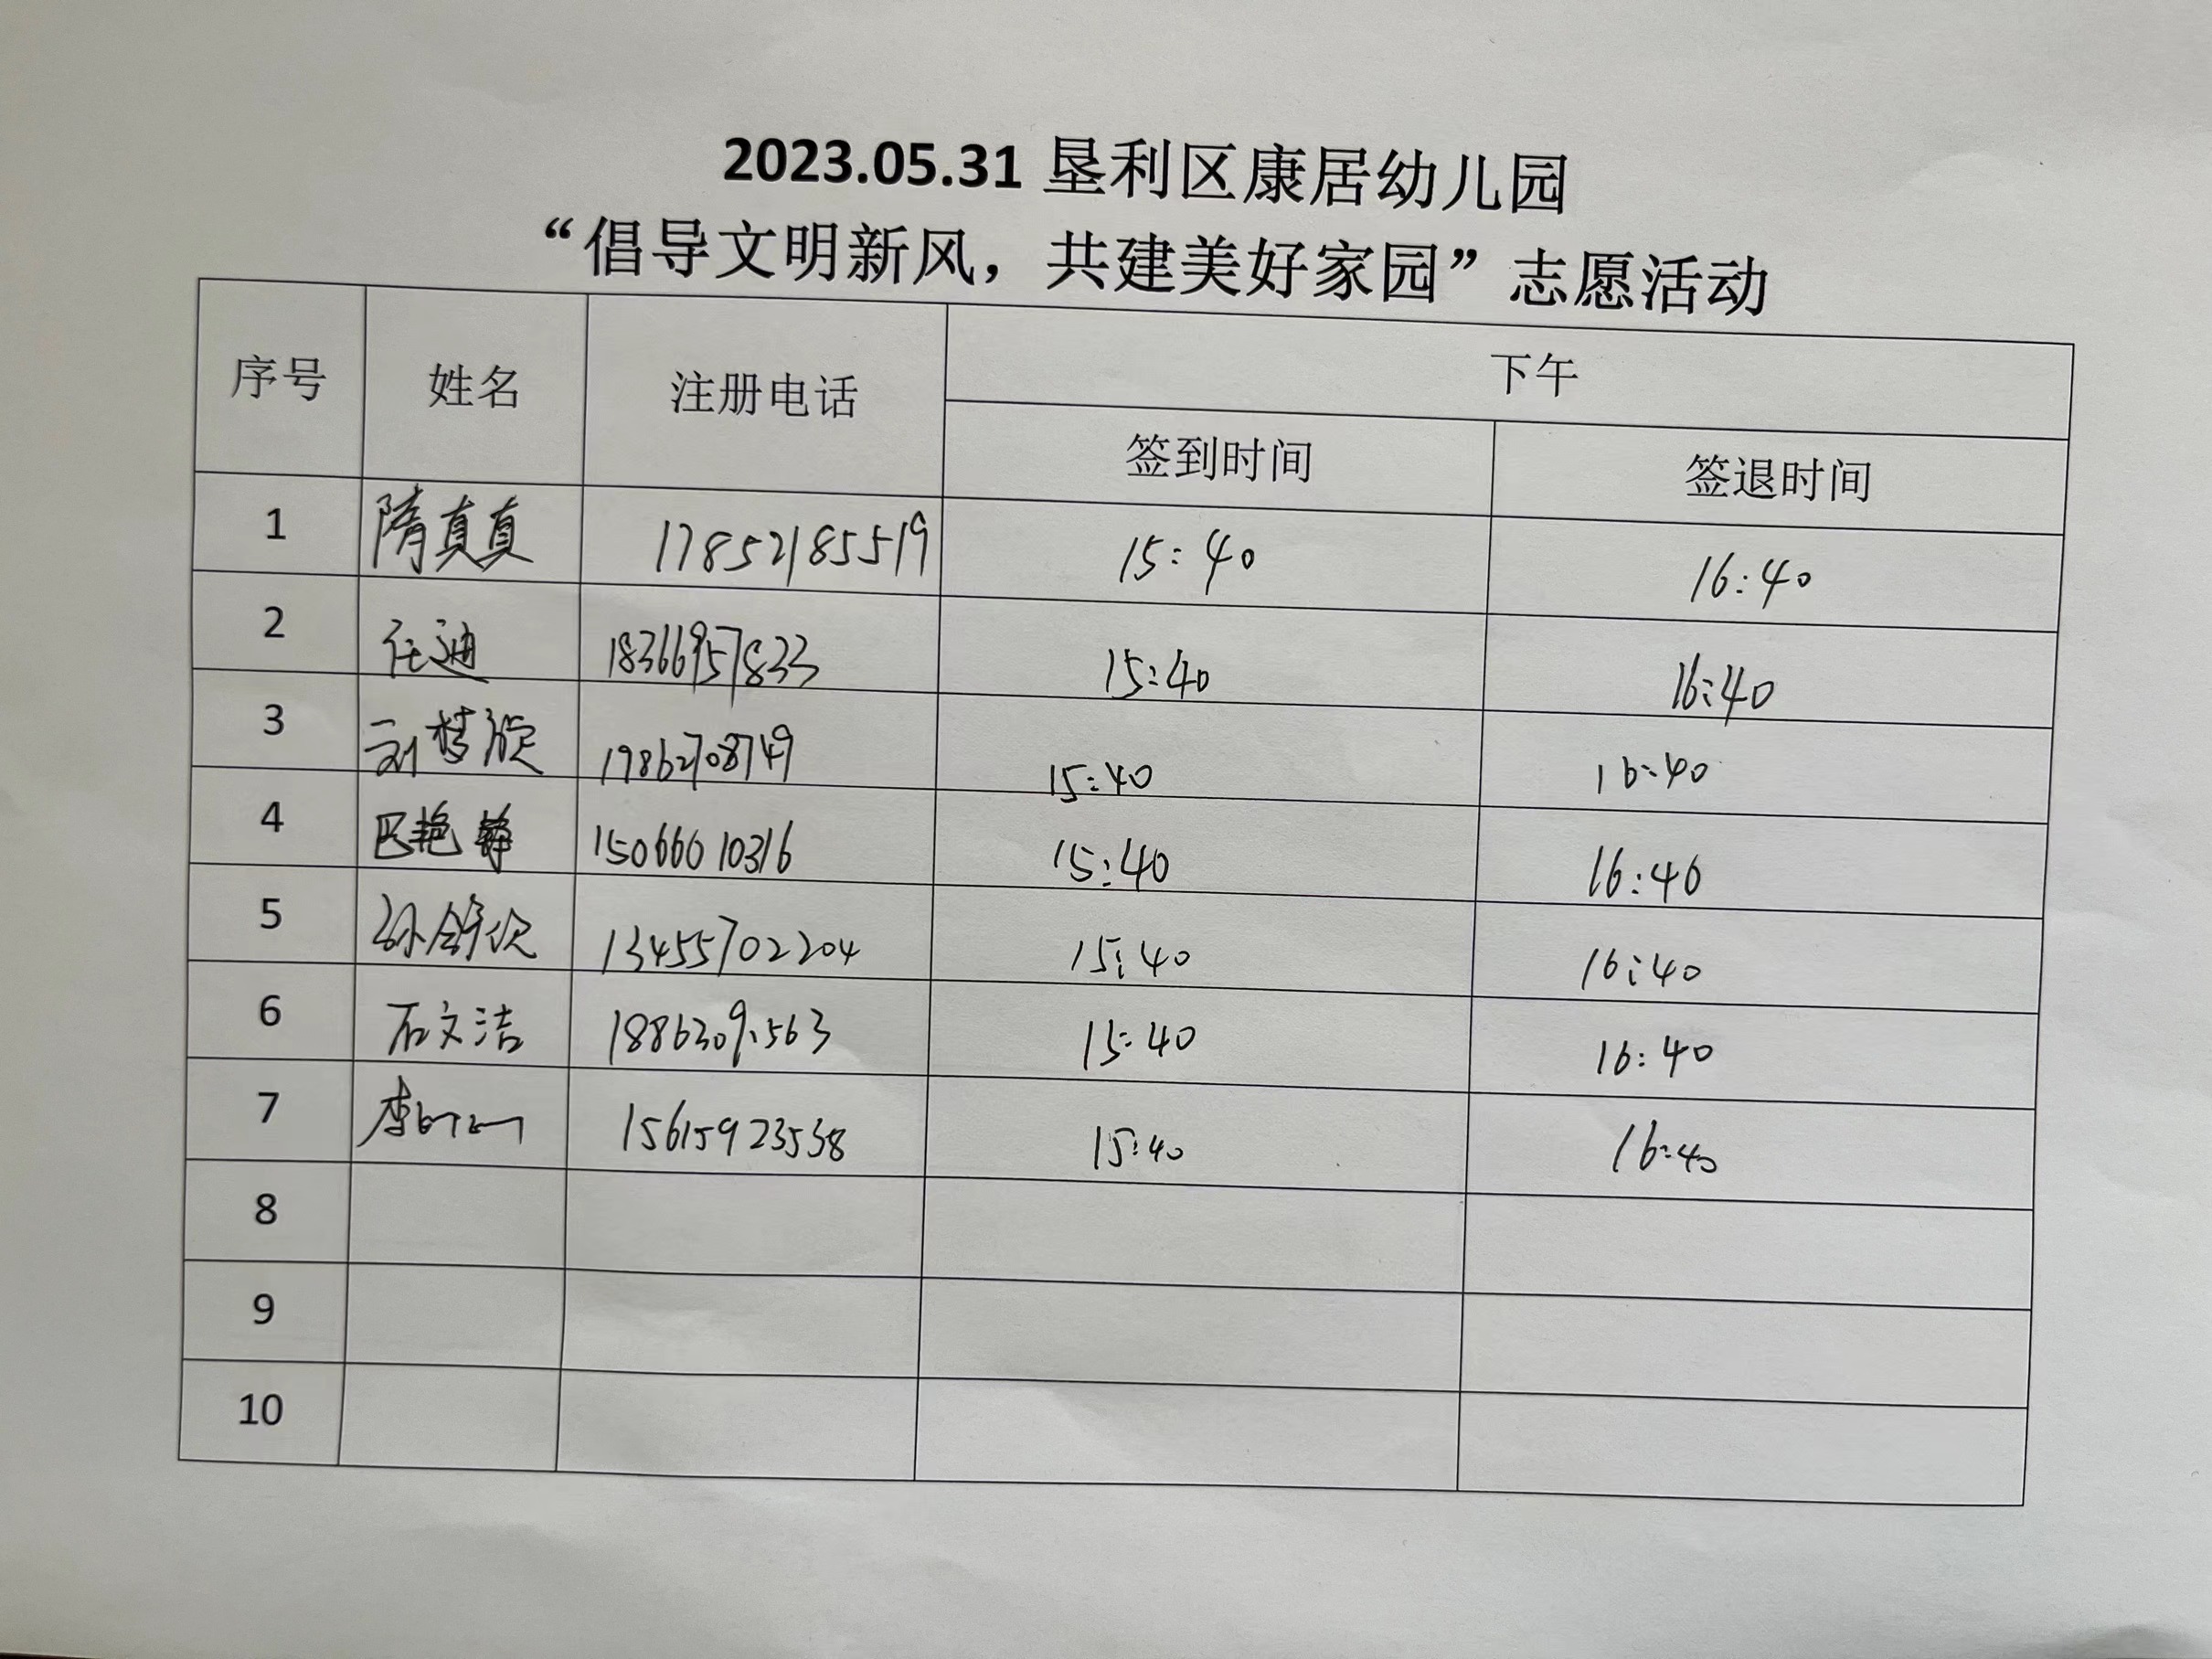 2023.05.31 垦利区康居幼儿园
“倡导文明新风，共建美好家园”志愿活动
序号 姓名 注册电话 下午
签到时间 签退时间
1 隋真真 17852185519 15:40 16:40
2 任迪 18366957833 15:40 16:40
3 刘梦 19862708749 15:40 16:40
4 巴艳静 15066010316 15:40 16:40
5 孙 13455702204 15:40 16:40
6 石文洁 15:40 16:40
7 李 15615923538 15:40 16:40
8
9
10